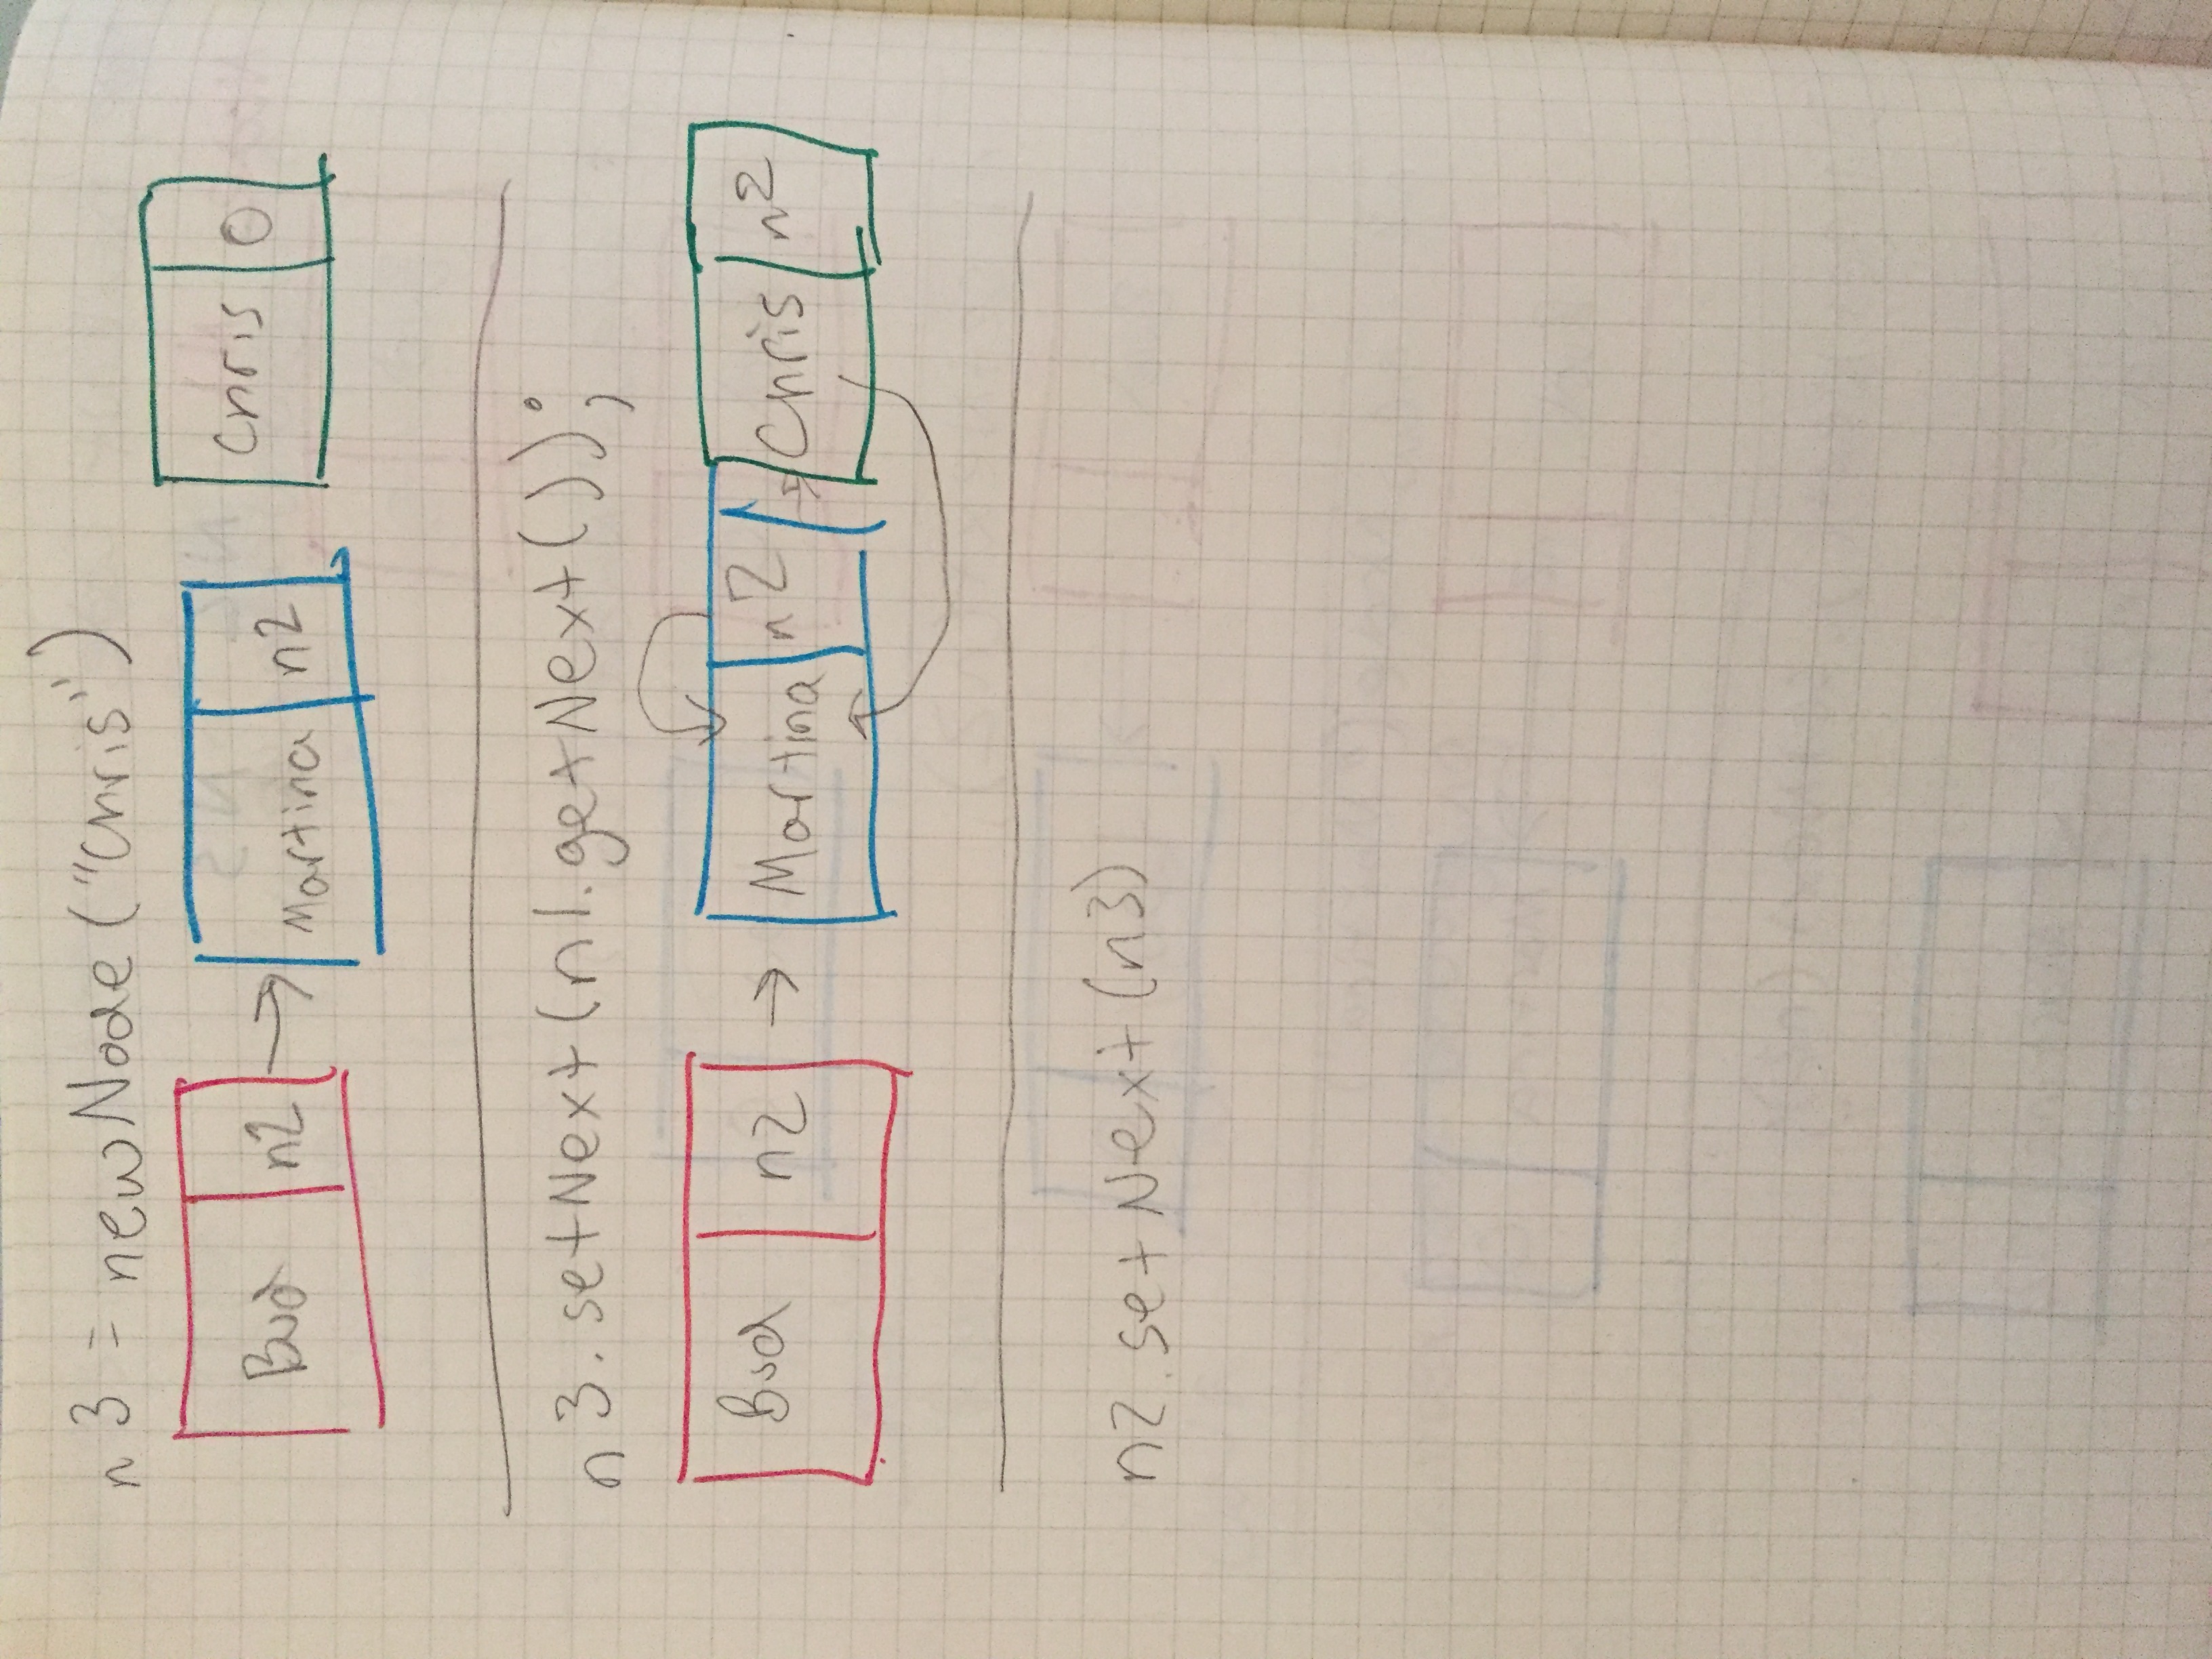 n3 = newNode ("Chris")
Bud n2 Martina n2 Chris 0
n3.setNext(n1.getNext());
Bud n2 Martina n2 Chris n2
n2.setNext(n3)